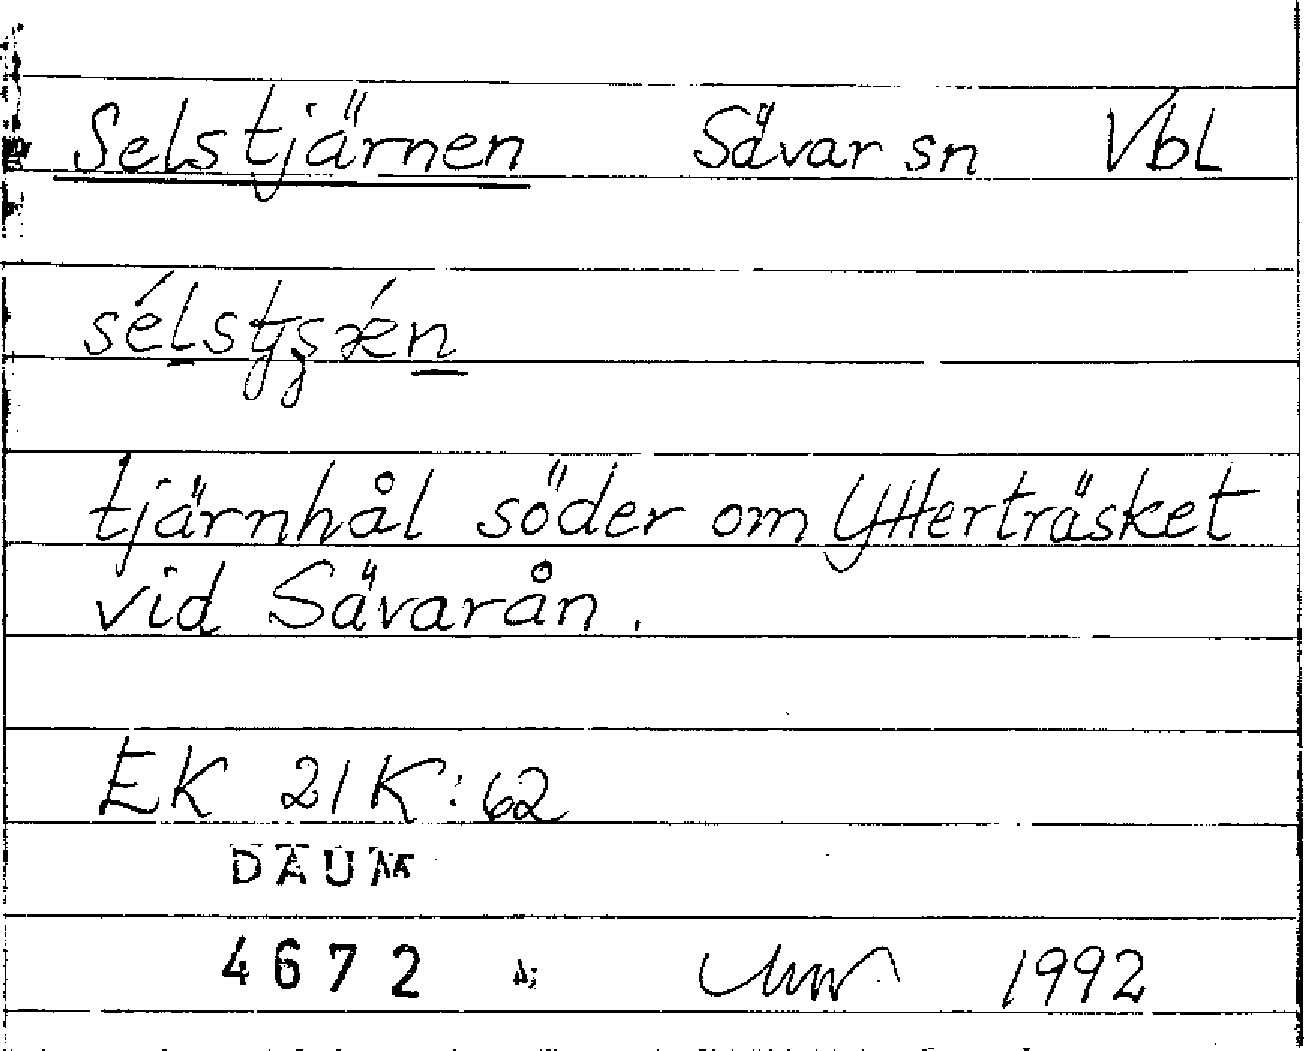 Selstjärnen Sävar sn Vbl
tjärnhål söder om Ytterträsket
vid Sävarån.
EK 21K:62
DAUM
4672
1992